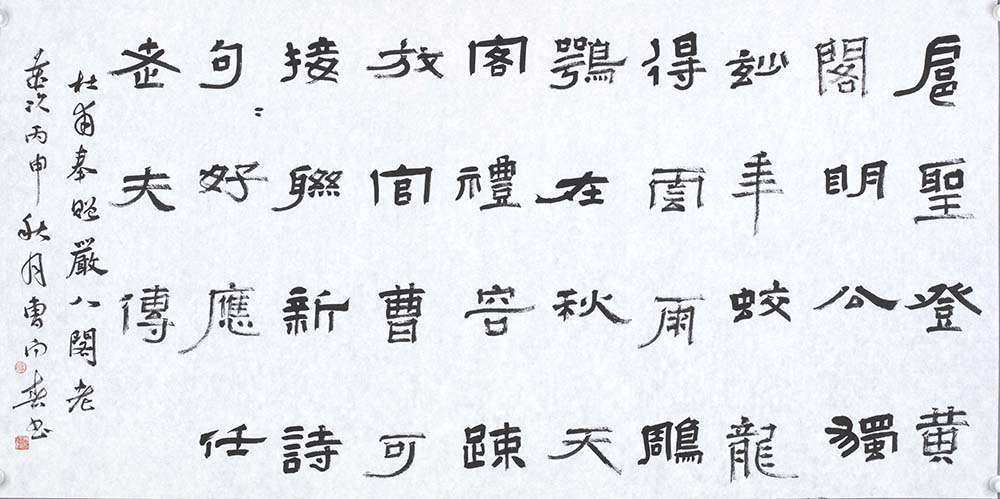 扈聖登黃
閣明公獨
玅年蛟龍
得雲雨鵰
鶚在秋天
客禮容疎
放官曹可
接聯新詩
句〻好應任
老夫傳
杜甫奉贈嚴八閣老
歲次丙申秋月曹向春书